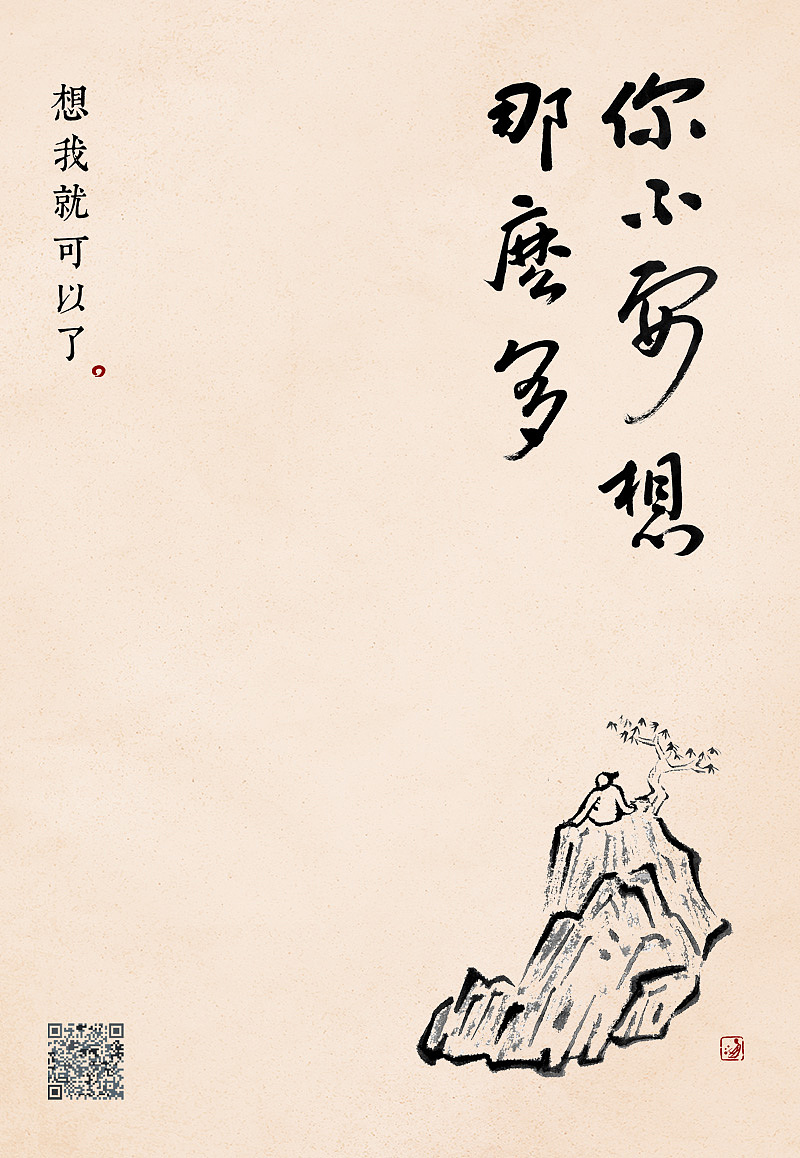 你不要想
那麼多
想我就可以了。